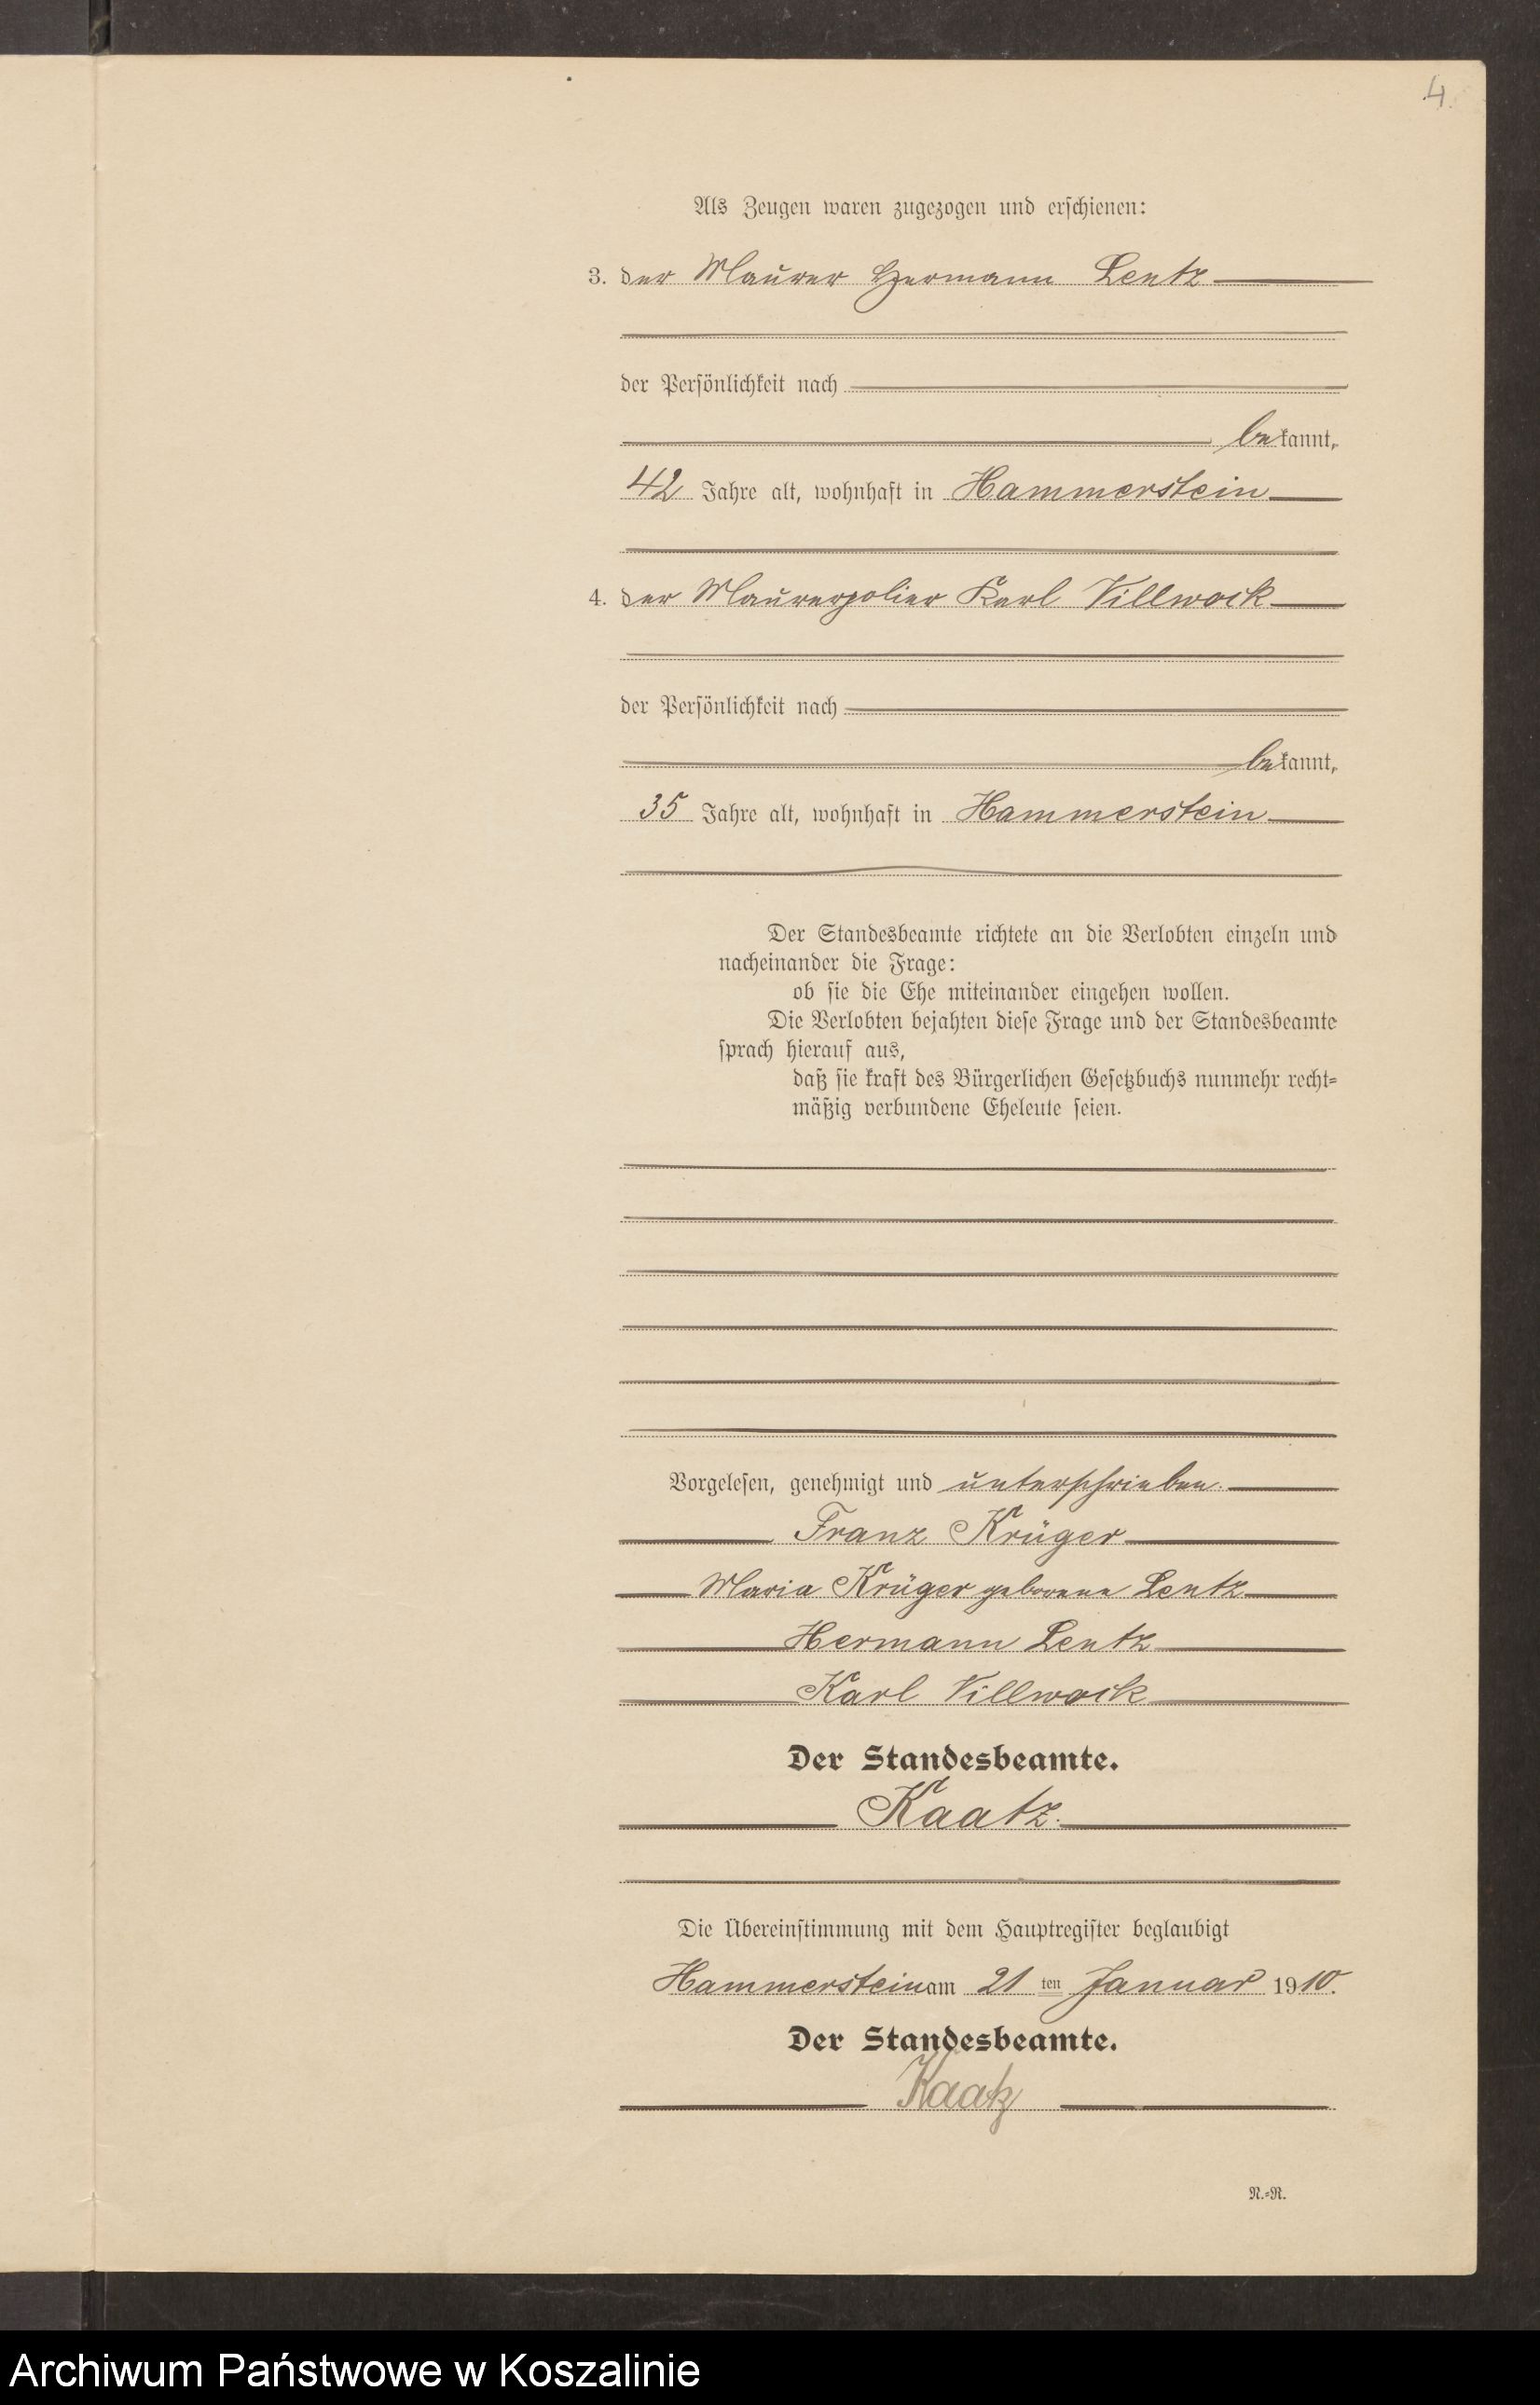 4.
Als Zeugen waren zugezogen und erschienen:
3. der Maurer Hermann Lentz
der Persönlichkeit nach
bekannt,
42 Jahre alt, wohnhaft in Hammerstein
4. der Maurerpolier Karl Villwock
der Persönlichkeit nach
bekannt,
35 Jahre alt, wohnhaft in Hammerstein
Der Standesbeamte richtete an die Verlobten einzeln und
nacheinander die Frage:
ob sie die Ehe miteinander eingehen wollen.
Die Verlobten bejahten diese Frage und der Standesbeamte
sprach hierauf aus,
daß sie kraft des Bürgerlichen Gesetzbuchs nunmehr recht-
mäßig verbundene Eheleute seien.
Vorgelesen, genehmigt und unterschrieben.
Franz Krüger
Maria Krüger geborene Lentz
Hermann Lentz
Karl Villwock
Der Standesbeamte.
Kaatz.
Die Übereinstimmung mit dem Hauptregister beglaubigt
Hammerstein am 21 ten Januar 1910.
Der Standesbeamte.
Kaatz
N.-R.
Archiwum Państwowe w Koszalinie